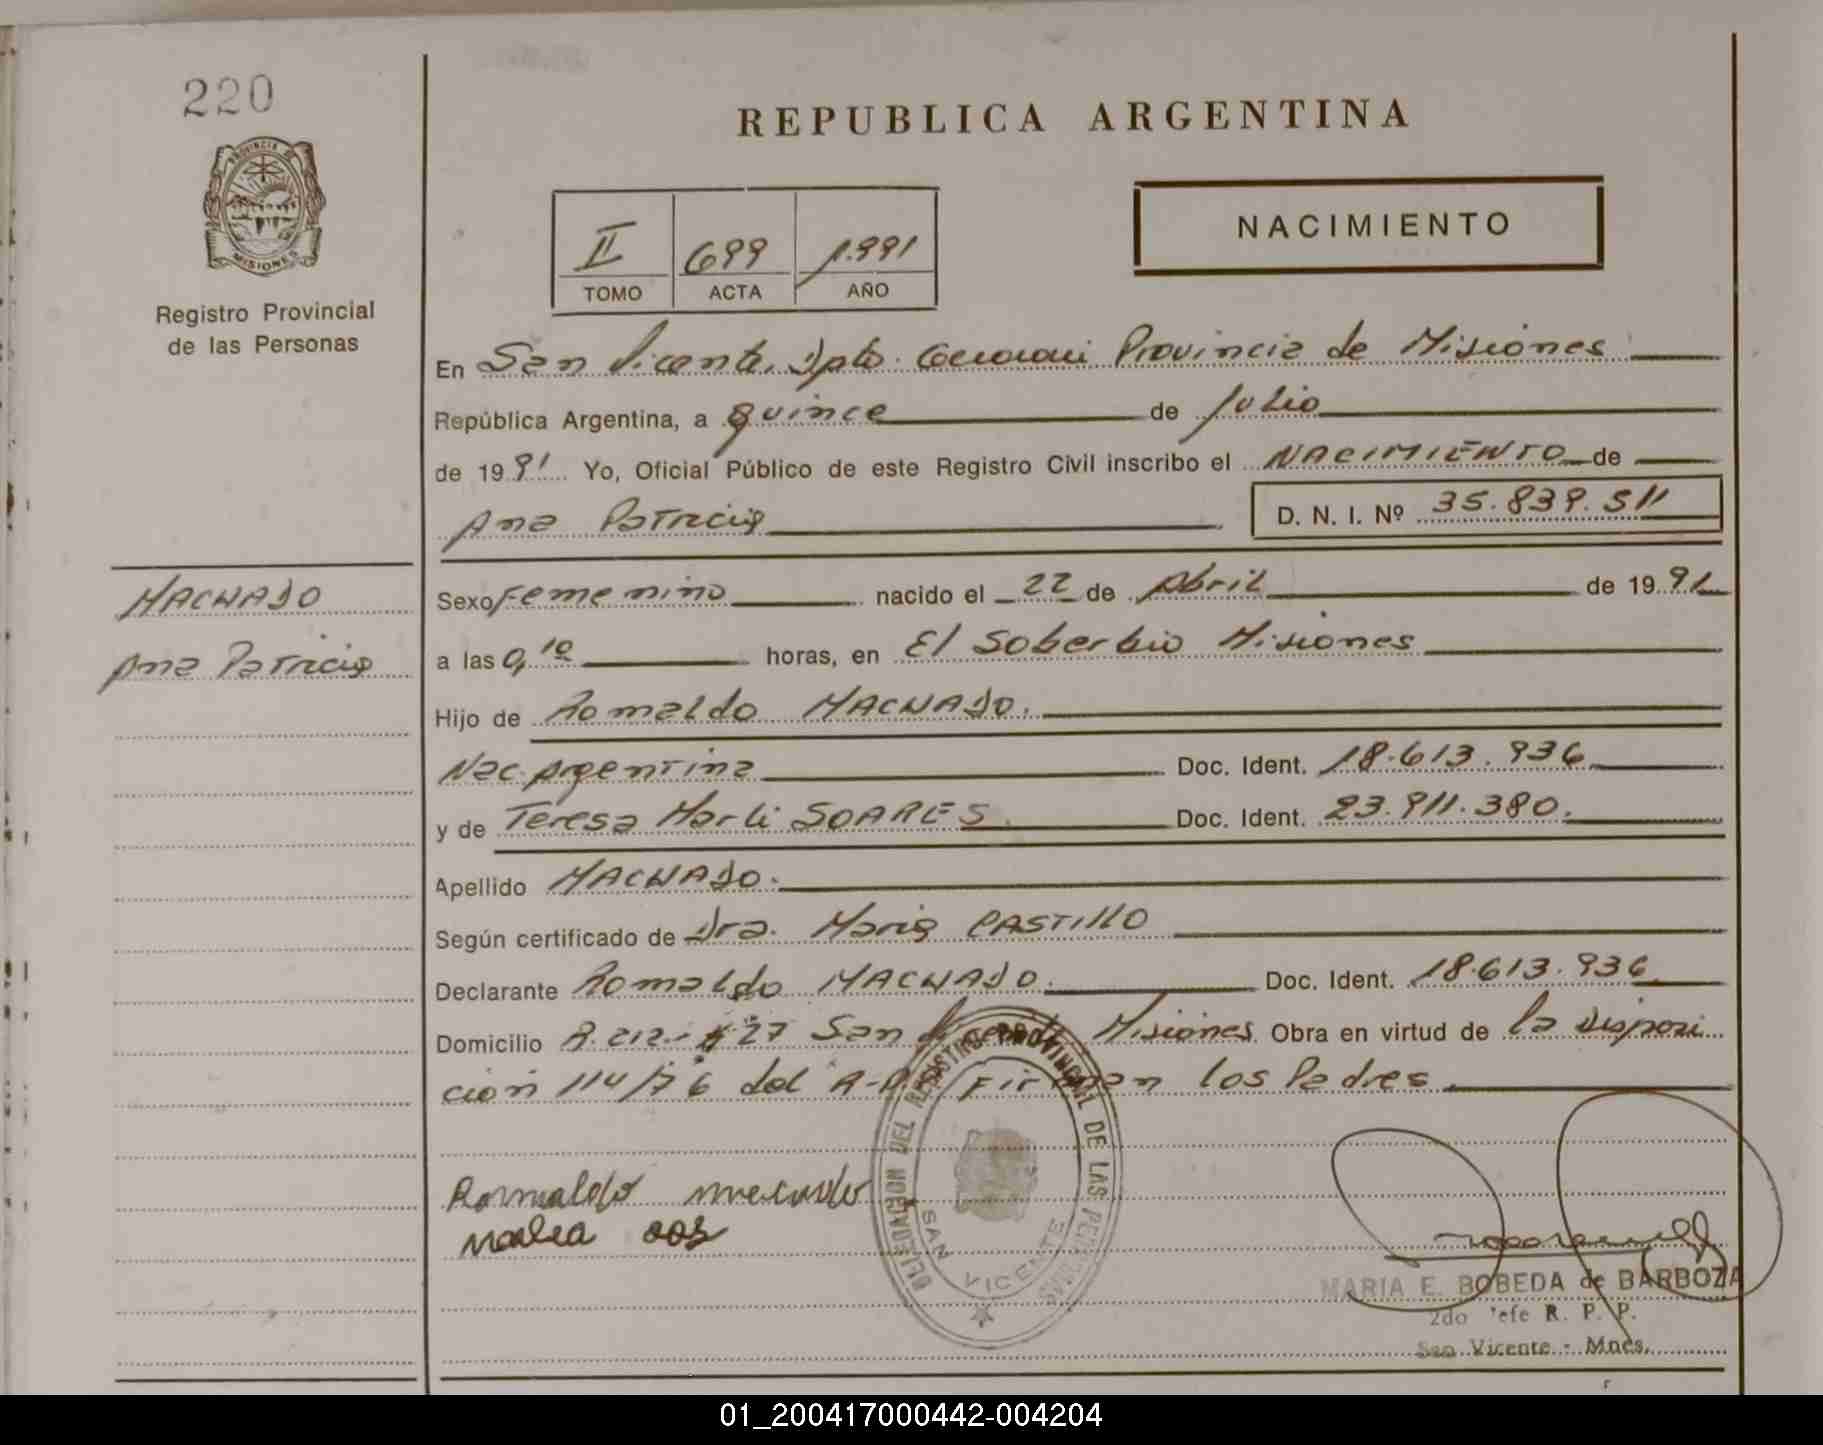 220
PROVINCIA DE
MISIONES
Registro Provincial
de las Personas
REPUBLICA ARGENTINA
II 699 1.991
TOMO ACTA AÑO
NACIMIENTO
En San Vicente, Dpto. Guarani Provincia de Misiones
República Argentina, a quince de Julio
de 1991 Yo, Oficial Público de este Registro Civil inscribo el NACIMIENTO de
Ana Patricia D. N. I. Nº 35.839.511
MACHADO
Ana Patricia
Sexo Femenino nacido el 22 de Abril de 1991
a las 0,10 horas, en El Soberbio Misiones
Hijo de Romaldo MACHADO.
Nac. Argentina Doc. Ident. 18.613.936
y de Teresa Marli SOARES. Doc. Ident. 23.911.380.
Apellido MACHADO.
Según certificado de Dra. Maria CASTILLO
Declarante Romaldo MACHADO. Doc. Ident. 18.613.936
Domicilio R. 212. 27 San Vicente Misiones Obra en virtud de la disposi
ción 114/76 del Firman los Padres
Romaldo
DELEGACION DEL REGISTRO PROVINCIAL DE LAS PERSONAS
SAN VICENTE
MARIA E. BOBEDA de BARBOZA
2do Jefe R. P. P.
San Vicente - Mnes.
01_200417000442-004204